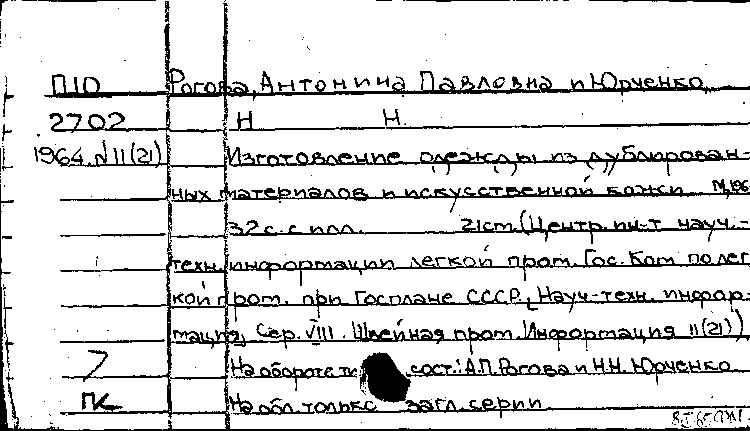 П10 Рогова, Антонина Павловна и Юрченко,
2702 Н Н.
1964. №11(21) Изготовление одежды из дублирован-
ных материалов и искусственной кожи. М, 196
32 с. с илл. 21 см. (Центр. ин-т науч.-
техн. информации легкой пром. Гос. Ком по лег
кой пром. при Госплане СССР. Науч-техн. инфор-
мация, Сер. VIII. Швейная пром. Информация 11(21))
На обороте ти сост.: А.П. Рогова и Н.Н. Юрченко
ПК На обл. только загл. серии